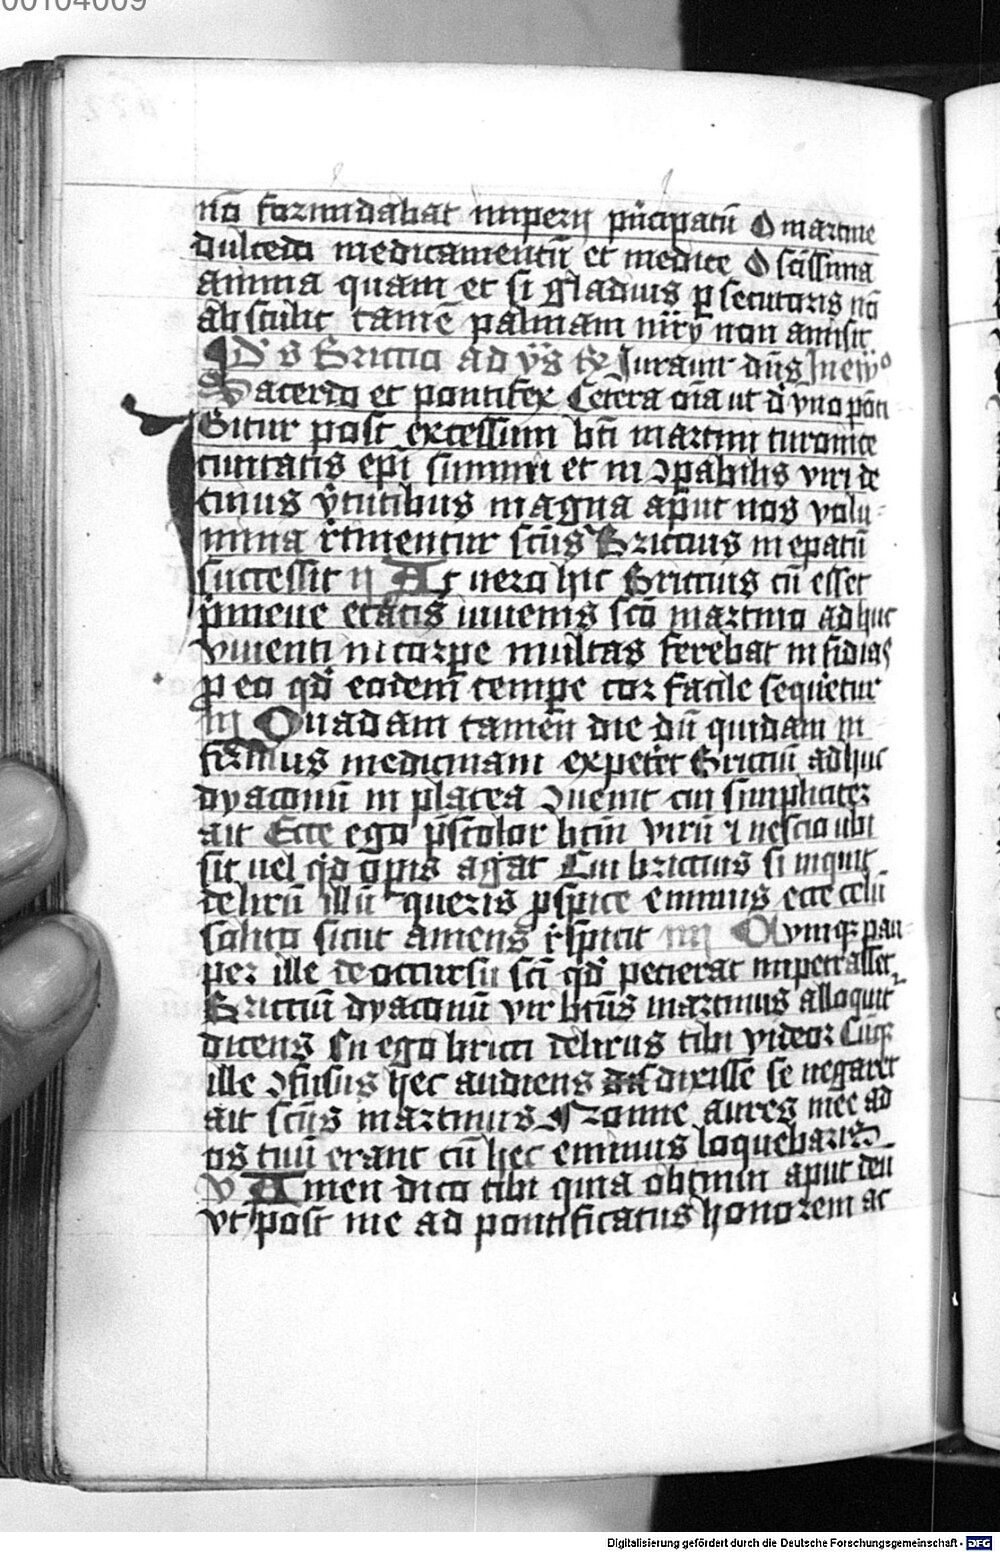 00104009
nō formidabat imperii pͥncipatū O martine
dulcedo medicamentū et medice O scīssima
anima quam et si gladius ꝑsecutoris nō
abstulit tamē palmam m̄rij non amisit
s Briccio ad vꝰs Iurauit dn̄s In ew°
Sacerdo et pontifex Cetera oīa ut d̄ vno pōti
Gitur post excessum bt̄i martini turonice
ciuitatis ep̄i summi et inↄpabilis viri de
cuius v̓tutibus magna aput nos volu-
mina r̓tinentur scūs Briccius in epatū
successit ij At uero hic Briccius cū esset
pͥmeue etatis iuuenis scō martino adhuc
viuenti in corꝑe multas ferebat insidias
ꝓ eo qd̓ eodem temꝑe cor facile sequeretur
iij Quadam tamen die dū quidam in
firmus medicinam expeter̓t Brictiū adhuc
dyaconū in platea ↄuenit cui simpliciter
ait Ecce ego p̄stolor btm̄ virū ⁊ nescio ubi
sit uel qͥd op̄is agat Cui briccius si inquit
delirū illū queris ꝓspice eminus ecce celū
solito sicut amens r̓spicit iiij Cumqꝫ pau-
per ille de occursu scī qd̓ petierat impetrasset
Brictiū dyaconū vir bt̄us martinus alloquit̄
dicens En ego bricti delirus tibi videor Cūqꝫ
ille ↄfusus hec audiens dixisse se negaret
ait scūs martinus Nonne aures mee ad
os tuū erant cū hec eminus loquebaris
v Amen dico tibi quia obtinui aput deū
vt post me ad pontificatus honorem ac
Digitalisierung gefördert durch die Deutsche Forschungsgemeinschaft - DFG